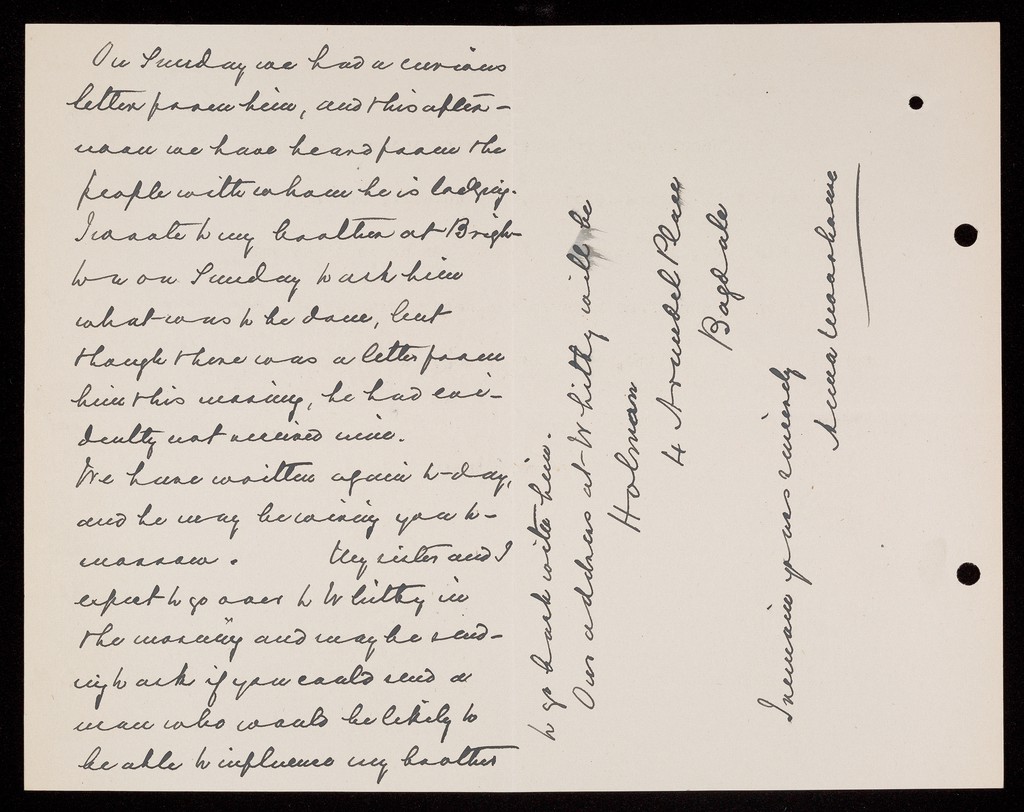 On Sunday we had a curious
letter from him, and this after-
noon we have heard from the
people with whom he is lodging.
I wrote to my brother at Brigh-
ton on Sunday to ask him
what was to be done, but
though there was a letter from
him this morning, he had evi-
dently not received mine.
We have written again to-day,
and he may be wiring you to-
morrow. My sister and I
expect to go over to Whitby in
the morning and may be send-
ing to ask if you could send a
man who would be likely to
be able to influence my brother
to go back with him.
Our address at Whitby will be
Holman
4 Arundel Place
Bagdale
I remain yours sincerely
Anna Moorhouse